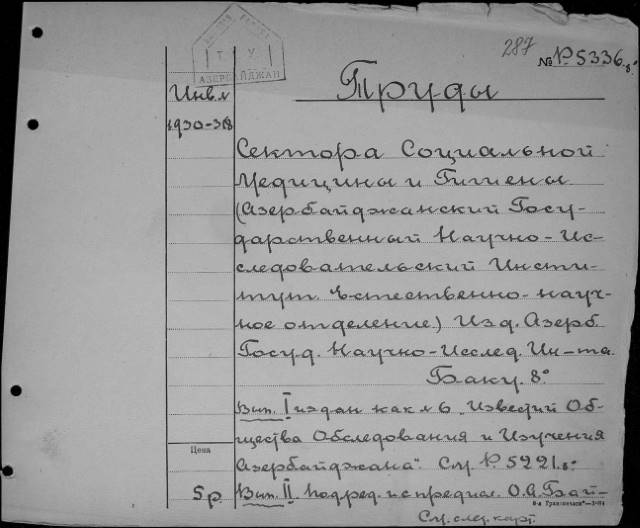 АЗЕРБАЙДЖАН
287
№ Р5336.8°
Инв. №
1930-318
Труды
Сектора Социальной
Медицины и Гигиены
(Азербайджанский Госу-
дарственный Научно-Ис-
следовательский Инсти-
тут. Естественно-науч-
ное отделение) Изд. Азерб.
Госуд. Научно-Исслед. Ин-та.
Баку. 8°
Вып. I издан как №6 "Известий Об-
щества Обследования и Изучения
Азербайджана". См. Р.5221.8°
Цена
5р.
Вып. II. под ред. и с предисл. О.А. Бай-
См. след. карт.